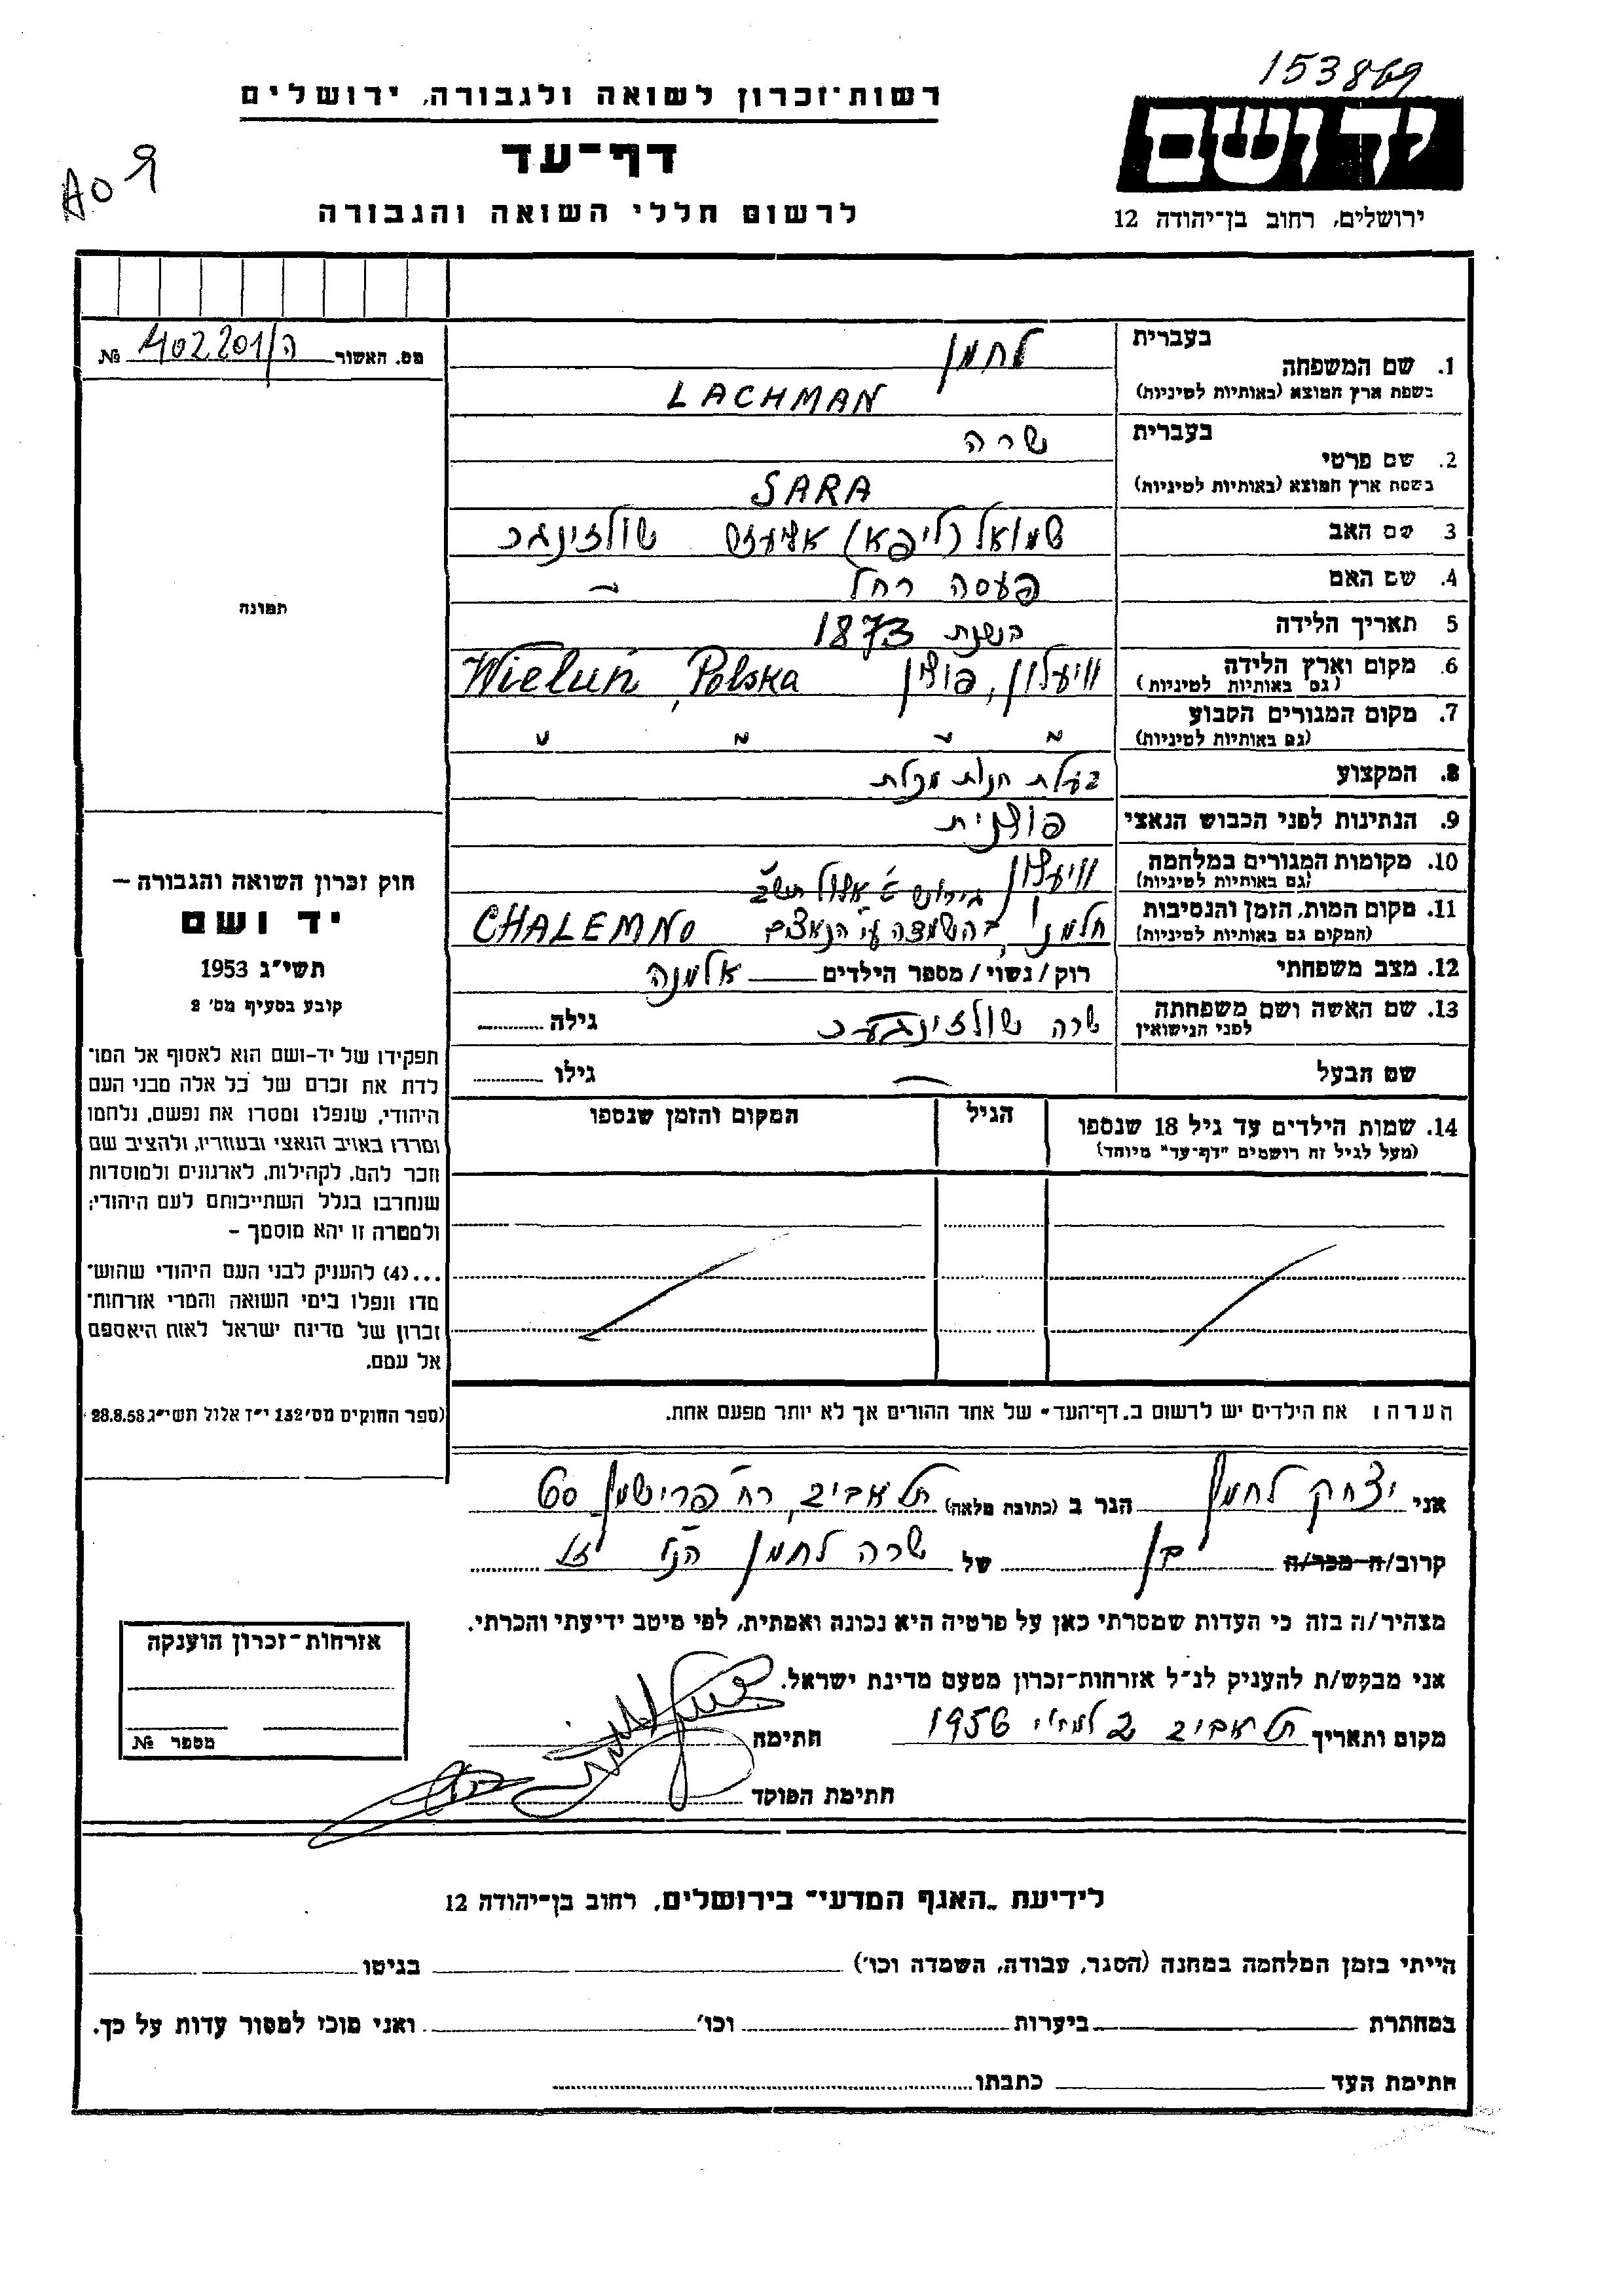 153869
רשות־זכרון לשואה ולגבורה, ירושלים
יד ושם
דף־עד
A09
לרשום חללי השואה והגבורה
ירושלים, רחוב בן־יהודה 12
מס. האשור ה/402201 №
תמונה
בעברית לחמן
1. שם המשפחה
בשפת ארץ המוצא (באותיות לטיניות) LACHMAN
בעברית שרה
2. שם פרטי
בשפת ארץ המוצא (באותיות לטיניות) SARA
3 שם האב שמואל (ליפא) אליעזר
4. שם האם פעסה רחל
5 תאריך הלידה בשנת 1873
6. מקום וארץ הלידה וויעלון, פולין Wieluń, Polska
(גם באותיות לטיניות)
7. מקום המגורים הקבוע " " " "
(גם באותיות לטיניות)
8. המקצוע בעלת חנות מכלת
9. הנתינות לפני הכבוש הנאצי פולנית
10. מקומות המגורים במלחמה וויעלון
(גם באותיות לטיניות) אלול תש"ב
11. מקום המות, הזמן והנסיבות חלמנו, בהשמדה ע"י הנאצים CHALEMNO
(המקום גם באותיות לטיניות)
12. מצב משפחתי רוק / נשוי / מספר הילדים אלמנה
13. שם האשה ושם משפחתה שרה גילה
לפני הנישואין
שם הבעל — גילו
14. שמות הילדים עד גיל 18 שנספו הגיל המקום והזמן שנספו
(מעל לגיל זה רושמים "דף־עד" מיוחד)
הערה: את הילדים יש לרשום ב„דף־העד" של אחד ההורים אך לא יותר מפעם אחת.
חוק זכרון השואה והגבורה –
יד ושם
תשי"ג 1953
קובע בסעיף מס' 2
תפקידו של יד-ושם הוא לאסוף אל המו־
לדת את זכרם של כל אלה מבני העם
היהודי, שנפלו ומסרו את נפשם, נלחמו
ומרדו באויב הנאצי ובעוזריו, ולהציב שם
וזכר להם, לקהילות, לארגונים ולמוסדות
שנחרבו בגלל השתייכותם לעם היהודי;
ולמטרה זו יהא מוסמך –
...(4) להעניק לבני העם היהודי שהוש־
מדו ונפלו בימי השואה והמרי אזרחות־
זכרון של מדינת ישראל לאות היאספם
אל עמם.
(ספר החוקים מס' 132 י"ז אלול תשי"ג 28.8.53
אני יצחק לחמן הגר ב (כתובת מלאה) תל אביב, רח' פרישמן 60
קרוב/ה מכר/ה בן של שרה לחמן הנ"ל ז"ל
מצהיר/ה בזה כי העדות שמסרתי כאן על פרטיה היא נכונה ואמתית, לפי מיטב ידיעתי והכרתי.
אני מבקש/ת להעניק לנ"ל אזרחות־זכרון מטעם מדינת ישראל.
מקום ותאריך תל אביב 1956 חתימה
חתימת הפוקד
אזרחות־זכרון הוענקה
מספר №
לידיעת „האגף המדעי" בירושלים, רחוב בן־יהודה 12
הייתי בזמן המלחמה במחנה (הסגר, עבודה, השמדה וכו') בגיטו
במחתרת ביערות וכו' ואני מוכן למסור עדות על כך.
חתימת העד כתבתו